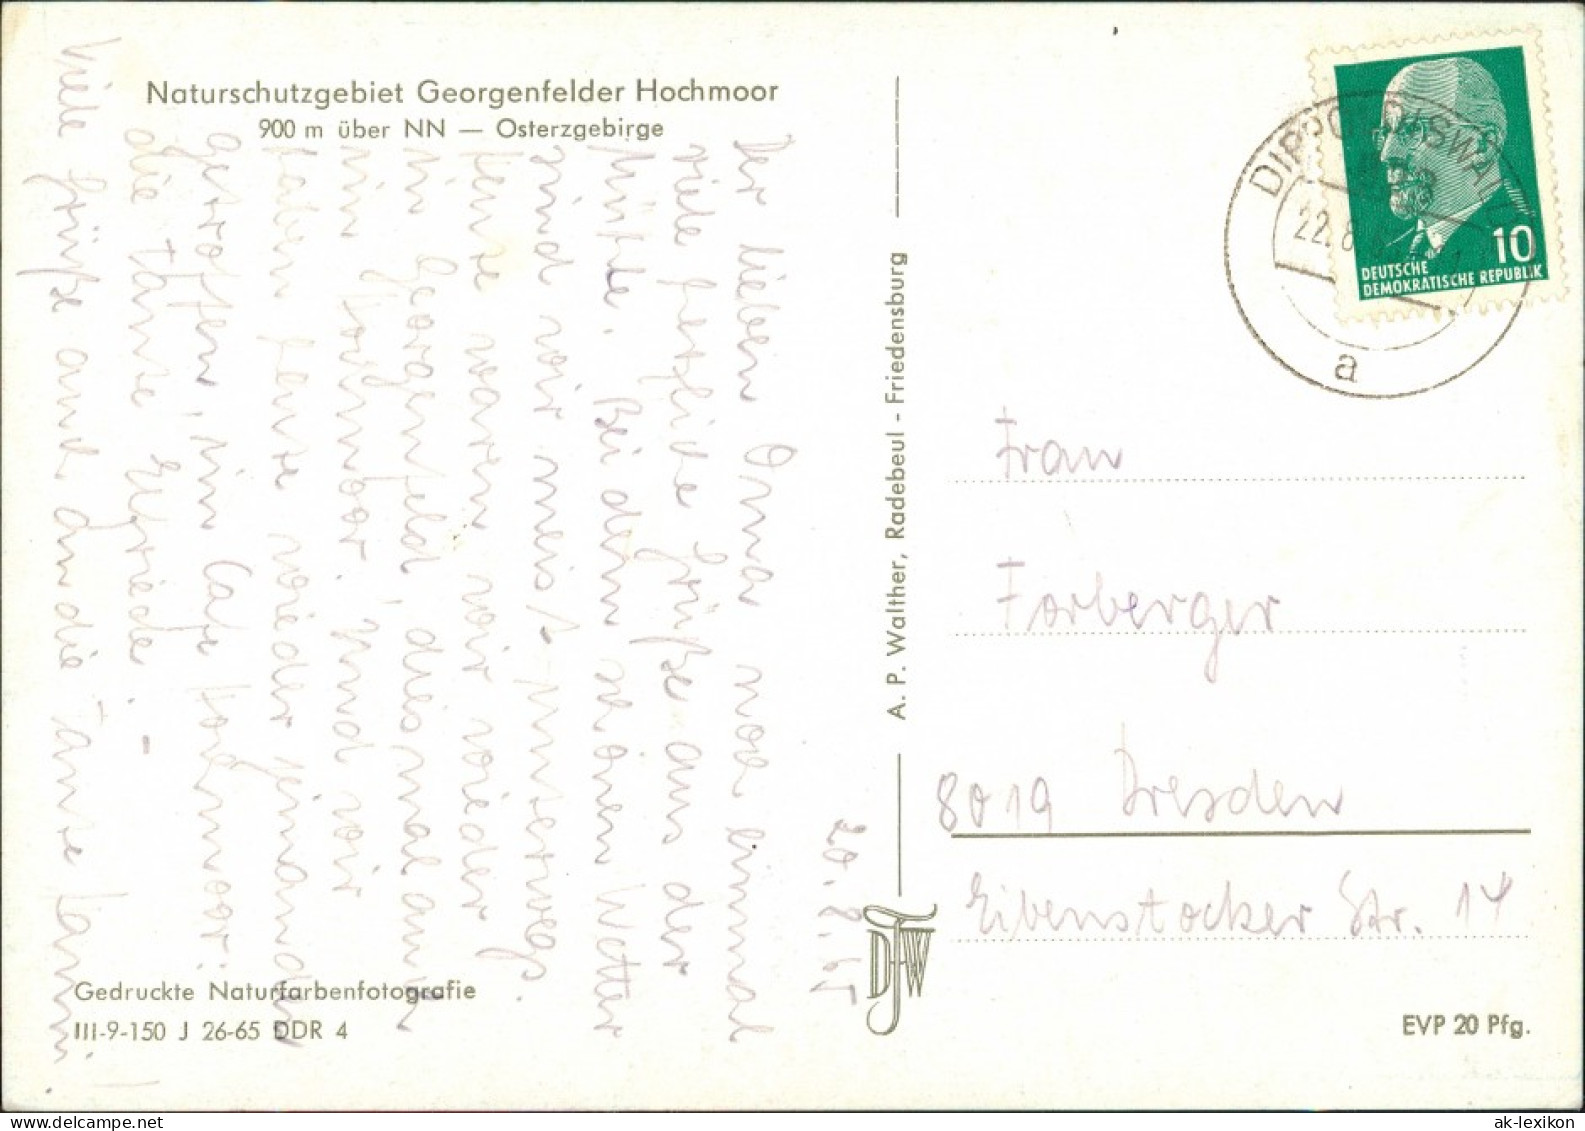 Naturschutzgebiet Georgenfelder Hochmoor
900 m über NN — Osterzgebirge
20.8.65
Der lieben Oma noch einmal
viele herzliche Grüße aus der
Mühle. Bei dem schönen Wetter
sind wir meist unterwegs.
Heute waren wir wieder
in Georgenfeld, diesmal auch
im Hochmoor. Und wir
haben heute wieder jemanden
getroffen, im Cafe Hochmoor:
die Tante Elfriede. -
Viele Grüße auch an die Tante Hanni!
Gedruckte Naturfarbenfotografie
III-9-150 J 26-65 DDR 4
A. P. Walther, Radebeul - Friedensburg
DIPPOLDISWALDE
22.8.
a
10
DEUTSCHE
DEMOKRATISCHE REPUBLIK
Frau
Forberger
8019 Dresden
Eibenstocker Str. 14
EVP 20 Pfg.
ak-lexikon